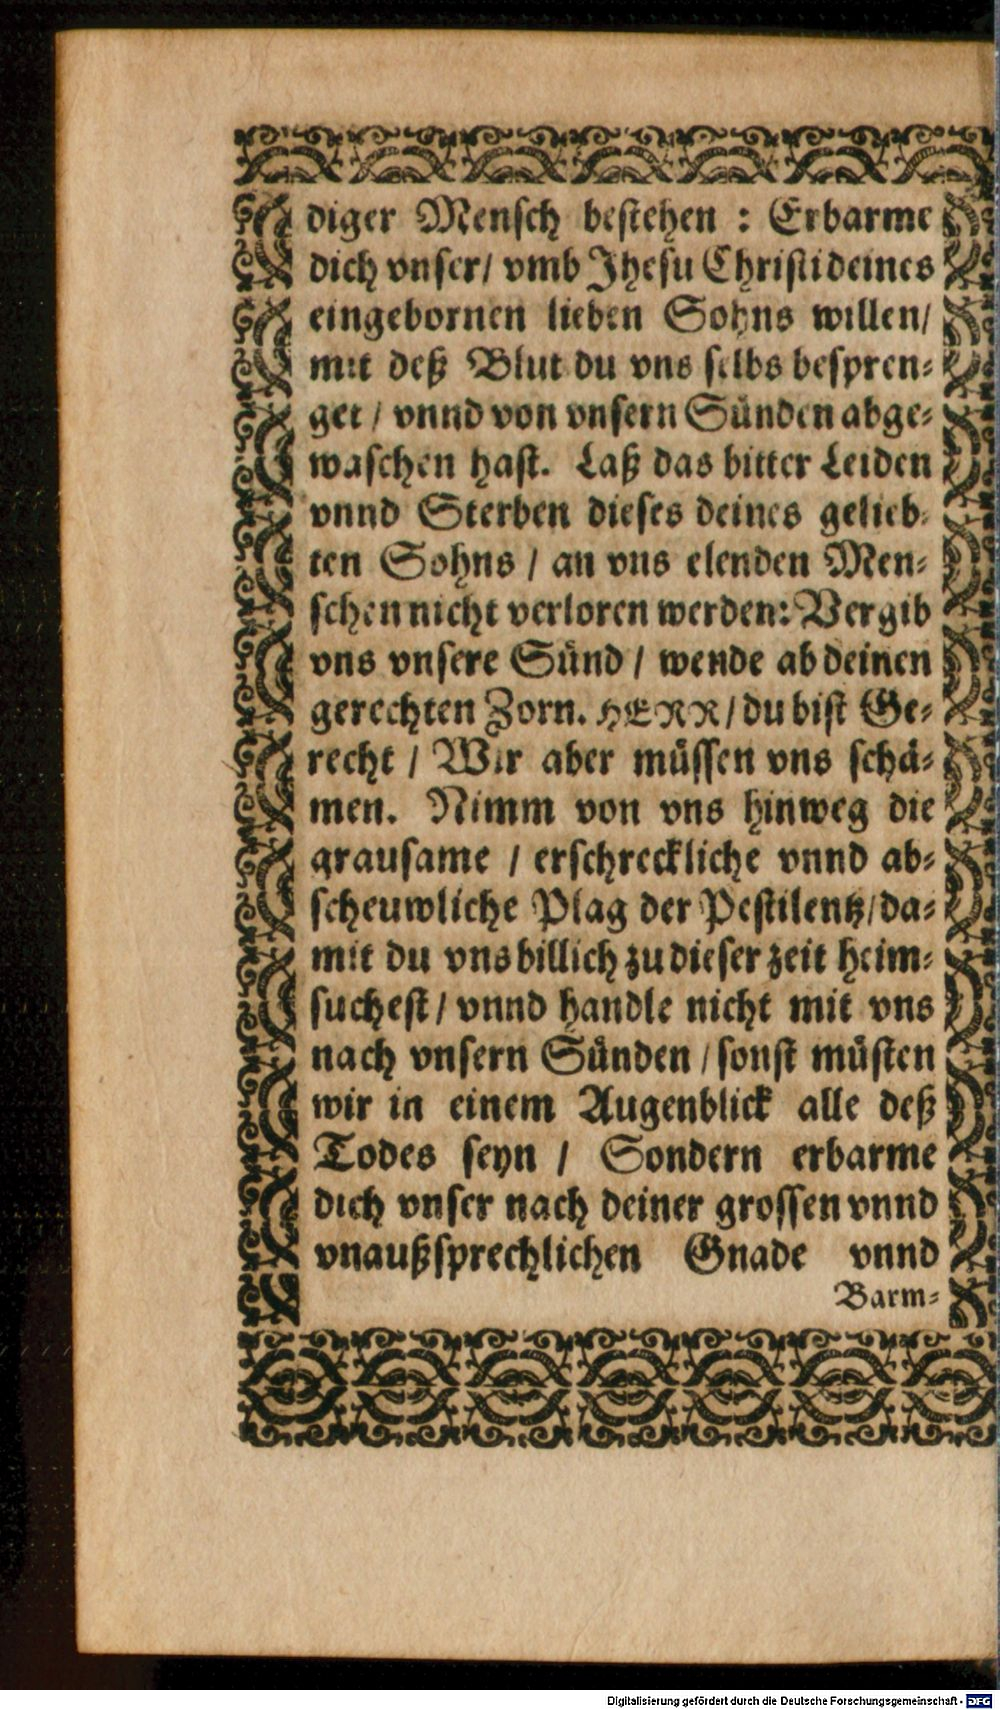 diger Mensch bestehen : Erbarme
dich vnser/ vmb Jhesu Christi deines
eingebornen lieben Sohns willen/
mit deß Blut du vns selbs bespren⸗
get / vnnd von vnsern Sünden abge⸗
waschen hast. Laß das bitter Leiden
vnnd Sterben dieses deines gelieb⸗
ten Sohns / an vns elenden Men⸗
schen nicht verloren werden: Vergib
vns vnsere Sünd / wende ab deinen
gerechten Zorn. HERR / du bist Ge⸗
recht / Wir aber müssen vns schä⸗
men. Nimm von vns hinweg die
grausame / erschreckliche vnnd ab⸗
scheuwliche Plag der Pestilentz/ da⸗
mit du vns billich zu dieser zeit heim⸗
suchest / vnnd handle nicht mit vns
nach vnsern Sünden / sonst müsten
wir in einem Augenblick alle deß
Todes seyn / Sondern erbarme
dich vnser nach deiner grossen vnnd
vnaußsprechlichen Gnade vnnd
Barm⸗
Digitalisierung gefördert durch die Deutsche Forschungsgemeinschaft - DFG